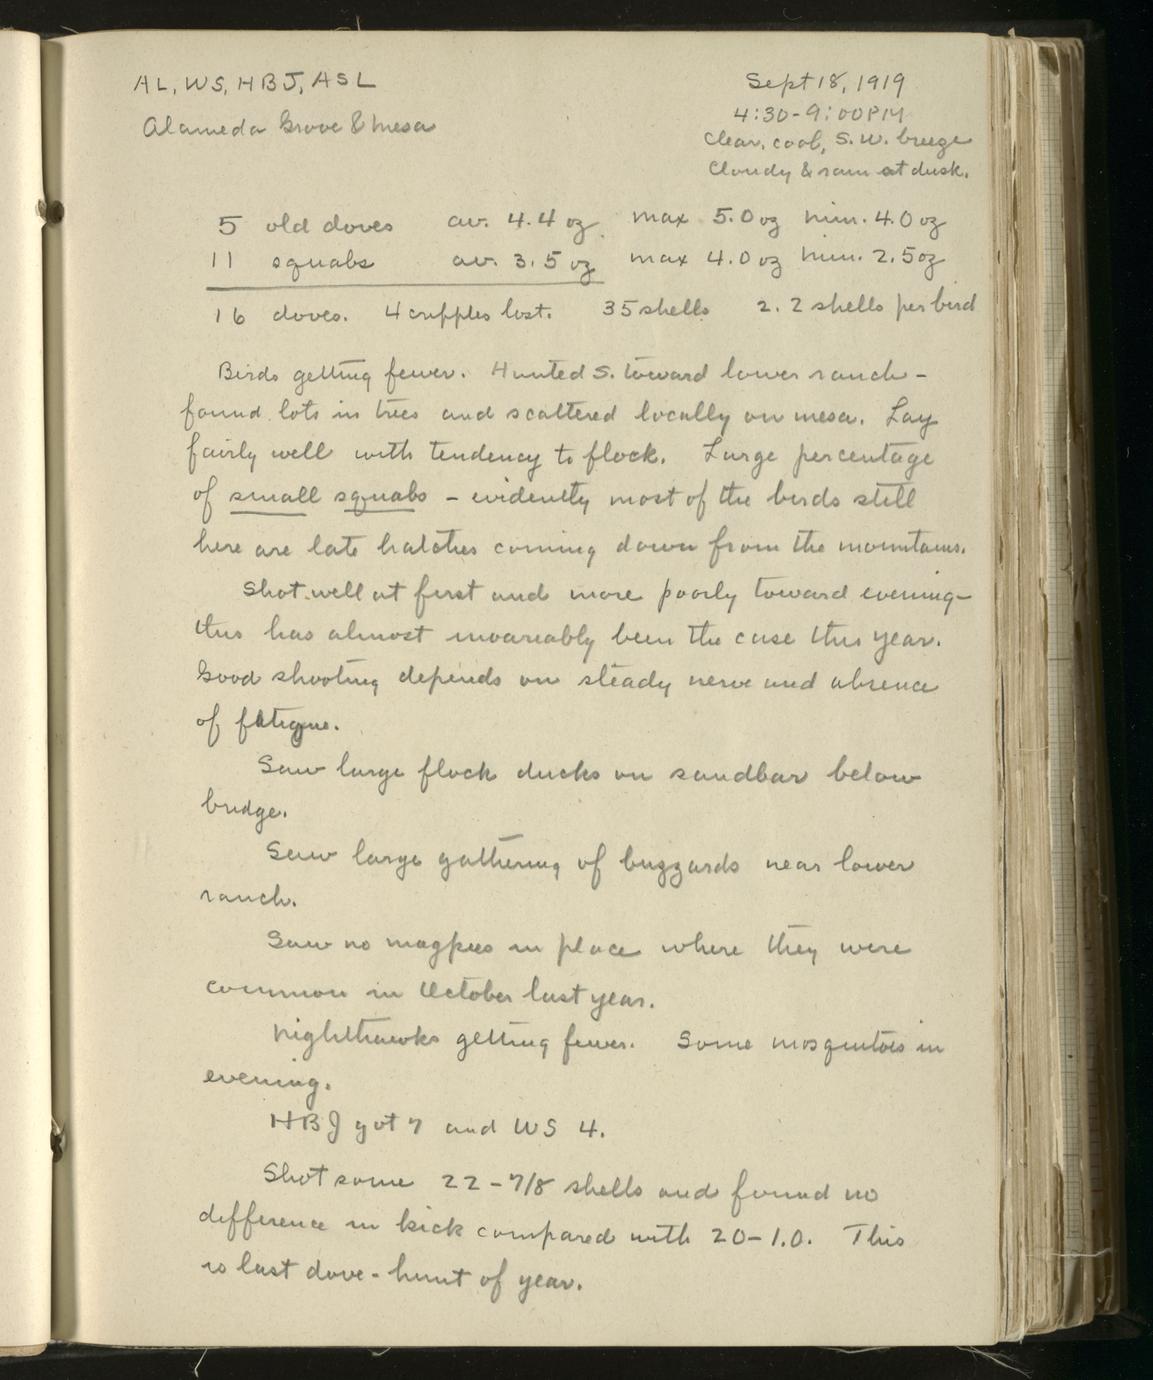 AL, WS, HBJ, ASL
Sept 18, 1919
Alameda Grove & Mesa
4:30-9:00 PM
Clear, cool, S.W. breeze
Cloudy & rain at dusk.
5 old doves av. 4.4 oz. max 5.0 oz min. 4.0 oz
11 squabs av. 3.5 oz max 4.0 oz min. 2.5 oz
16 doves. 4 cripples lost. 35 shells 2.2 shells per bird
Birds getting fewer. Hunted S. toward lower ranch -
found lots in trees and scattered locally on mesa. Lay
fairly well with tendency to flock. Large percentage
of small squabs - evidently most of the birds still
here are late hatches coming down from the mountains.
Shot well at first and more poorly toward evening -
this has almost invariably been the case this year.
Good shooting depends on steady nerve and absence
of fatigue.
Saw large flock ducks on sandbar below
bridge.
Saw large gathering of buzzards near lower
ranch.
Saw no magpies in place where they were
common in October last year.
Nighthawks getting fewer. Some mosquitois in
evening.
HBJ got 7 and WS 4.
Shot some 22-7/8 shells and found no
difference in kick compared with 20-1.0. This
is last dove-hunt of year.